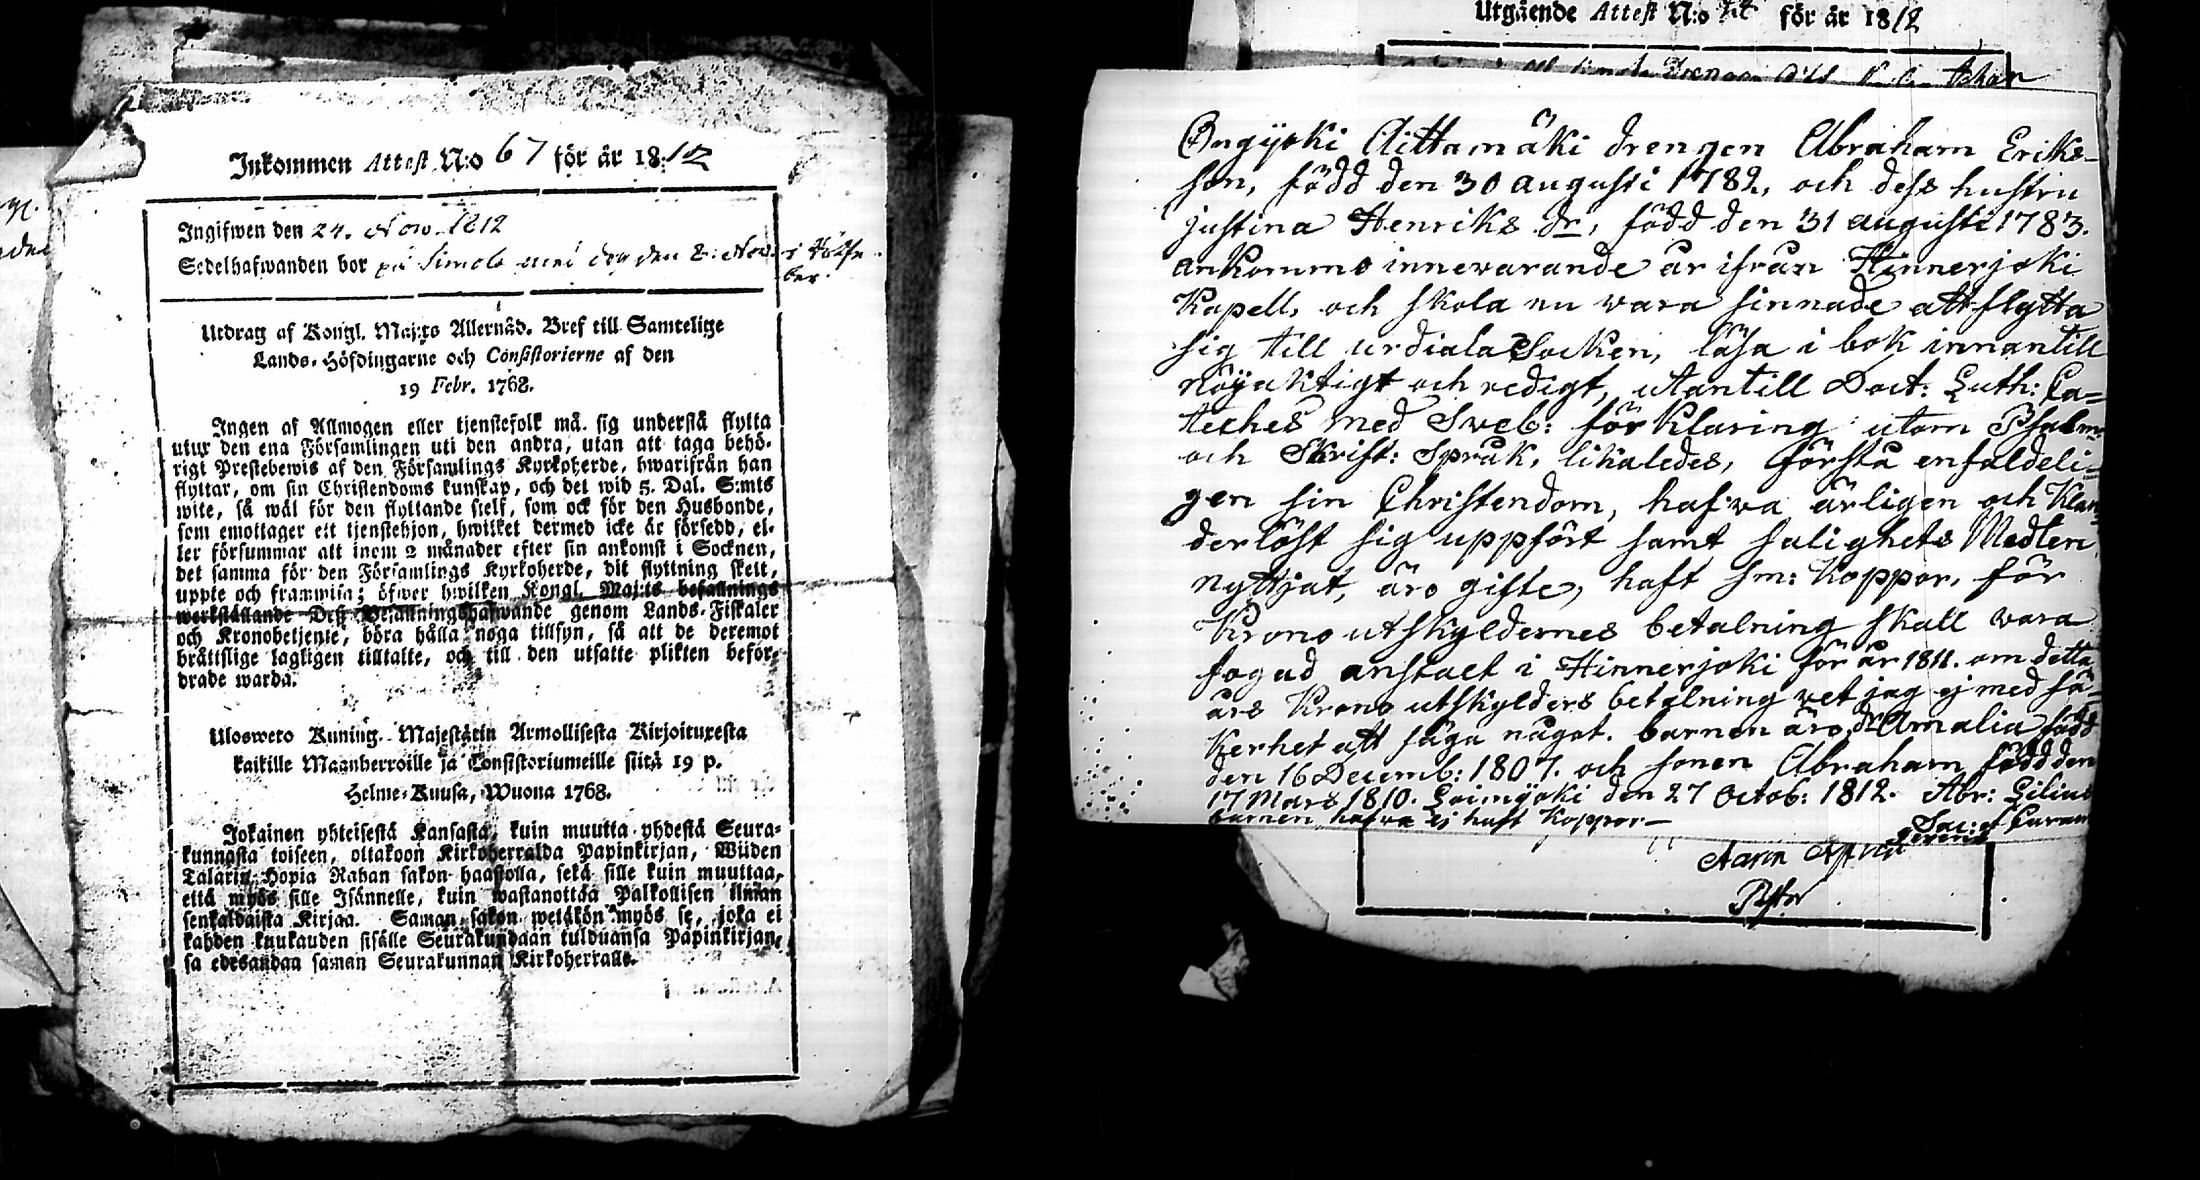 Inkommen Attest N:o 67 för år 1812
Ingifwen den 24. Nov. 1812
Sedelhafwanden bor på Simola
Utdrag af Kongl. Maj:ts Allernåd. Bref till Samtelige
Lands-Höfdingarne och Consistorierne af den
19 Febr. 1768.
Ingen af Allmogen eller tjenstefolk må sig understå flytta
utur den ena Församlingen uti den andra, utan att taga behö-
rigt Prestebewis af den Församlings Kyrkoherde, hwarifrån han
flyttar, om sin Christendoms kunskap, och det wid 5. Dal. S:mts
wite, så wäl för den flyttande sielf, som ock för den Husbonde,
som emottager ett tjenstehjon, hwilket dermed icke är försedd, el-
ler försummar att inom 2 månader efter sin ankomst i Socknen,
det samma för den Församlings Kyrkoherde, dit flyttning skett,
uppte och framwisa; öfwer hwilken Kongl. Maj:ts befallnings
werkställande Deß Befallningshafwande genom Lands-Fiskaler
och Kronobetjente, böra hålla noga tillsyn, så att de deremot
bråttslige lagligen tilltalte, och till den utsatte plikten beför-
drade warda.
Ulosweto Kuning. Majestätin Armollisesta Kirjoituxesta
kaikille Maanherroille ja Consistoriumeille siitä 19 p.
Helme-Kuusa, Wuona 1768.
Jokainen yhteisestä Kansasta, kuin muutta yhdestä Seura-
kunnasta toiseen, ottakoon Kirkoherralda Papinkirjan, Wiiden
Talarin Hopia Rahan sakon haastolla, sekä sille kuin muuttaa,
että myös sille Isännelle, kuin wastanottaa Palkollisen ilman
senkaldaista Kirjaa. Saman sakon wetäkön myös se, joka ei
kahden kuukauden sisälle Seurakundaan tulduansa Papinkirjan,
sa edesandaa saman Seurakunnan Kirkoherralle.
Utgående Attest N:o för år 1812
Ongijoki Aittamäki drengen Abraham Eriks-
son, född den 30 augusti 1782, och dess hustru
justina Henriks dr, född den 31 augusti 1783.
ankommo innevarande år ifrån Hinnerjoki
Kapell, och skola nu vara sinnade att flytta
sig till urdiala Socken, läsa i bok innantill
nöyaktigt och redigt, utantill Doct: Luth: Ca-
teches med Sveb: förklaring utom Psalm
och Skrift: Språk, likaledes, förstå enfaldeli-
gen sin Christendom, hafva ärligen och Klan-
derlöst sig uppfört samt salighets Medlen
nyttjat, äro gifte, haft sm: Koppor, för
Krono utskyldernes betalning skall vara
fogad anstalt i Hinnerjoki för år 1811. om detta
års Krono utskylders betalning vet jag ej med sä-
kerhet att säga något. barnen äro, dr Amalia född
den 16 Decemb: 1807. och sonen Abraham född den
17 Mars 1810. Loimijoki den 27 Octob: 1812. Abr: Lilius
barnen hafva ej haft Koppor—
Pastor